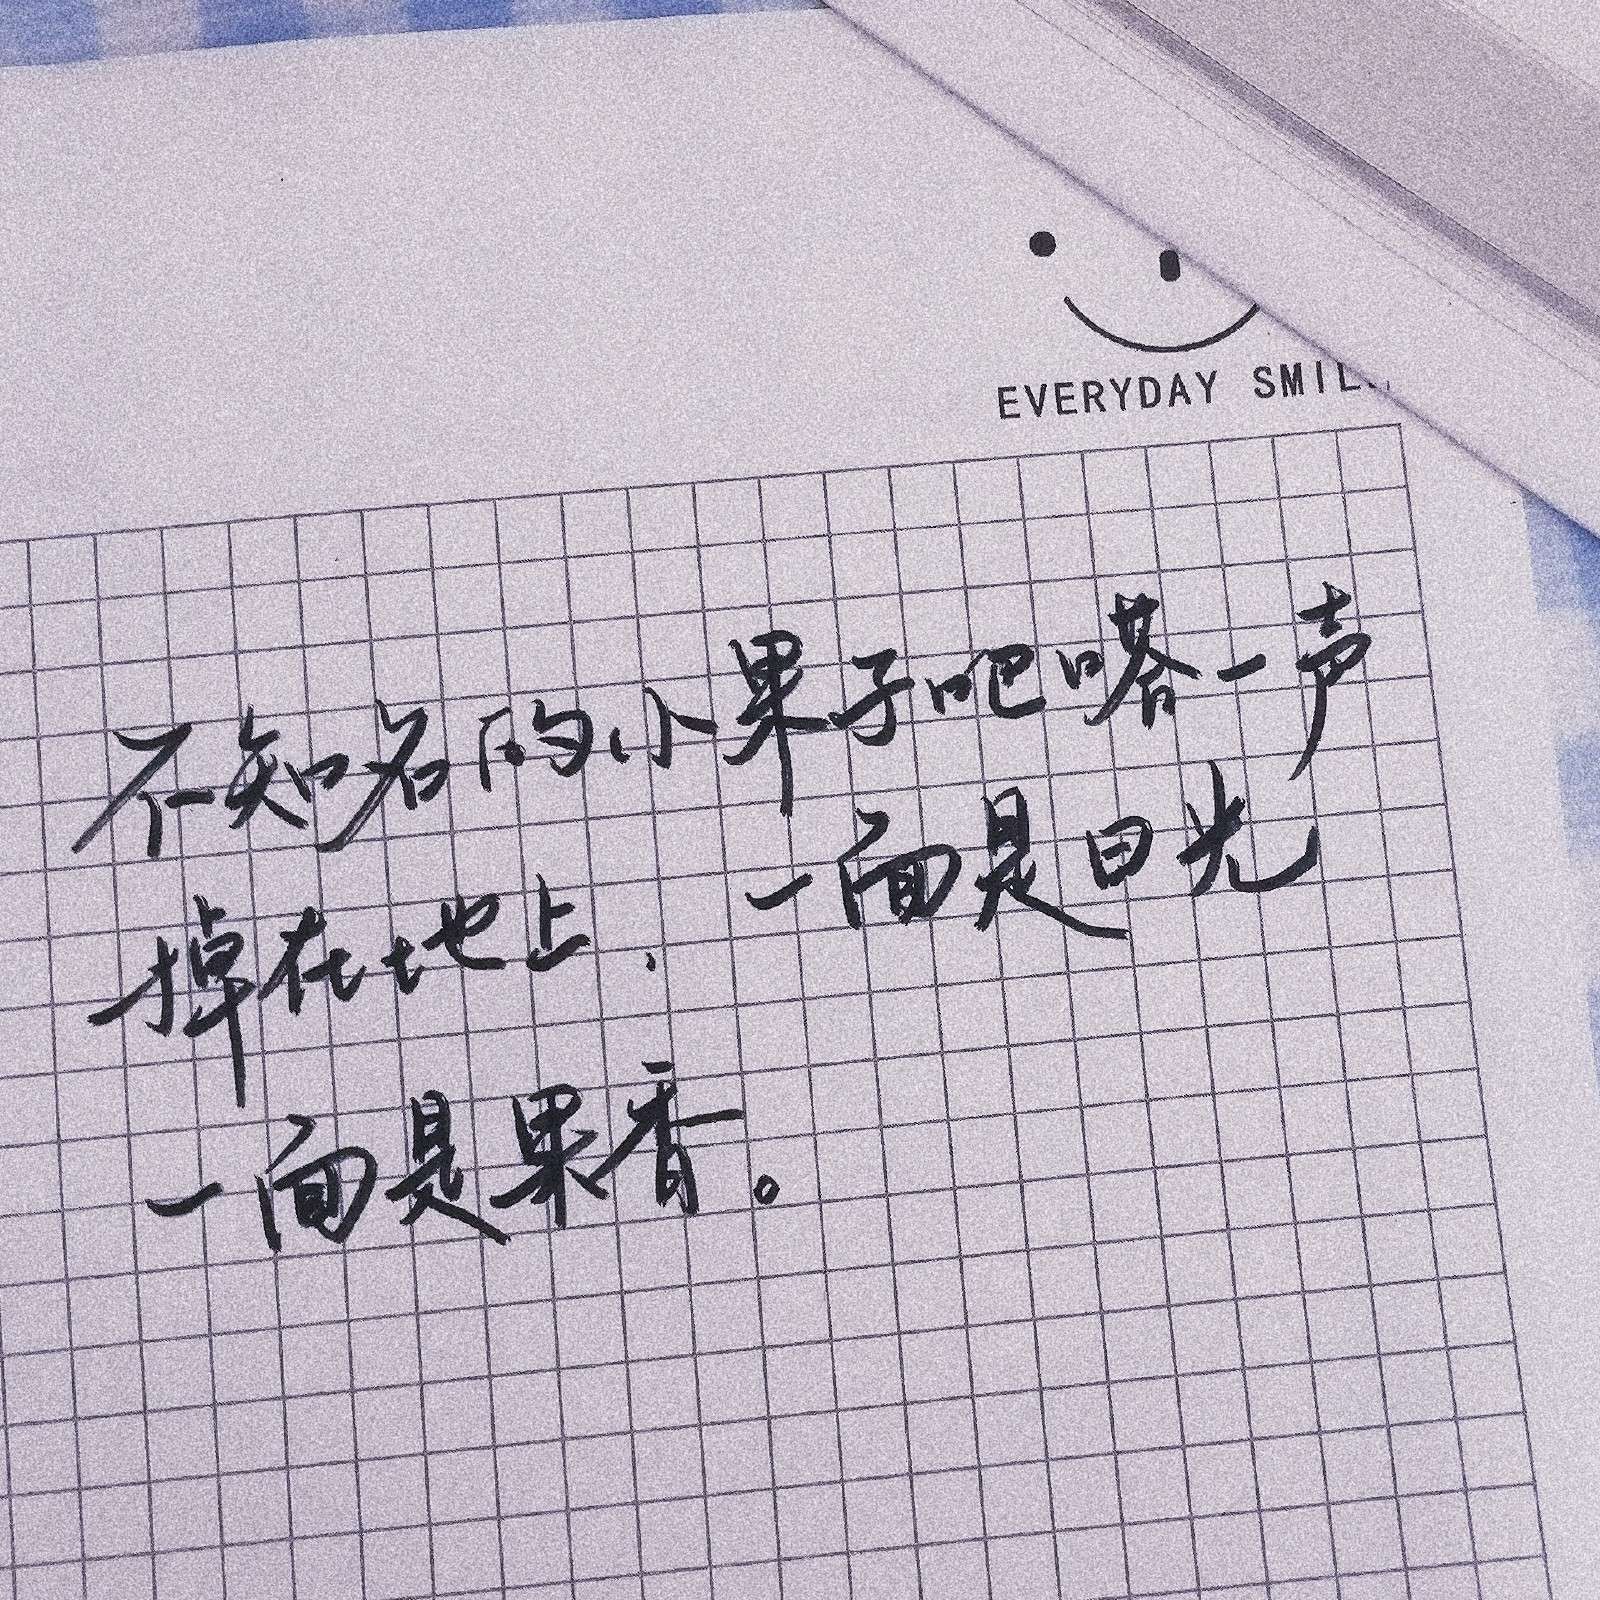 EVERYDAY SMIL
不知名的小果子吧嗒一声
掉在地上、一面是日光
一面是果香。